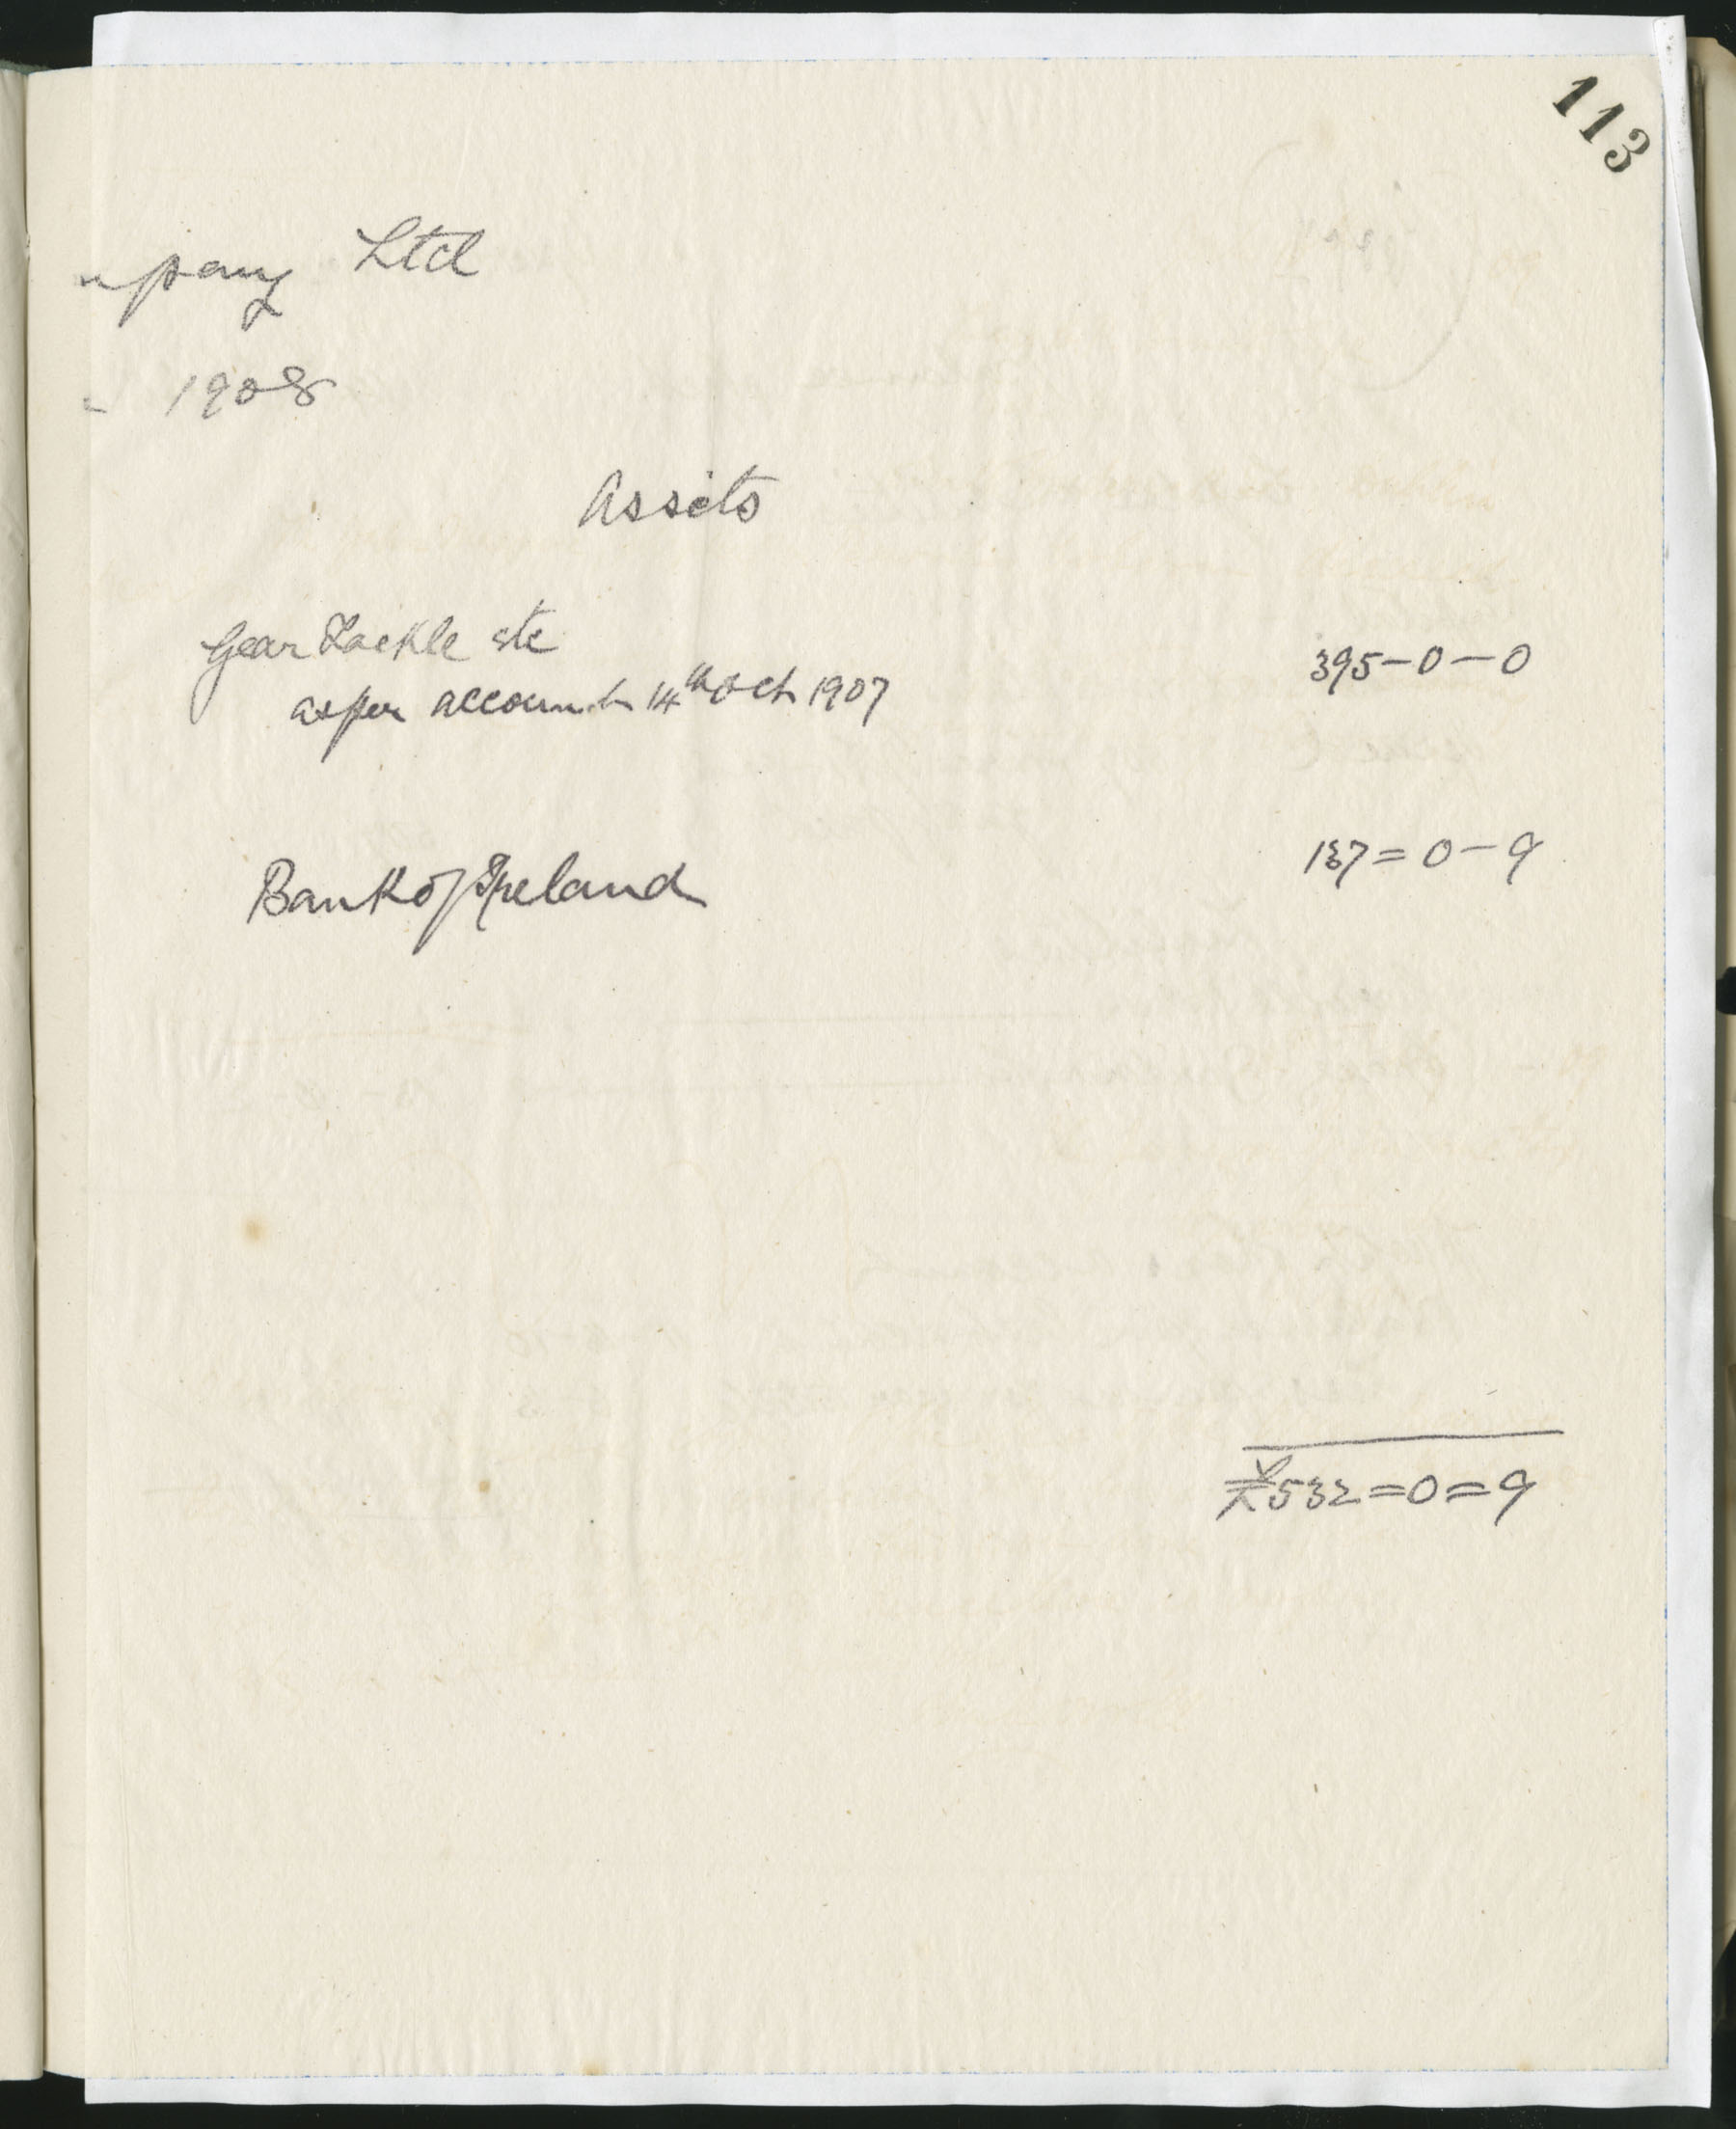 113
mpany Ltd
1908
Assets
Gear Tackle etc
as per account 14th Oct 1907
395-0-0
Bank of Ireland
137=0-9
£532=0=9